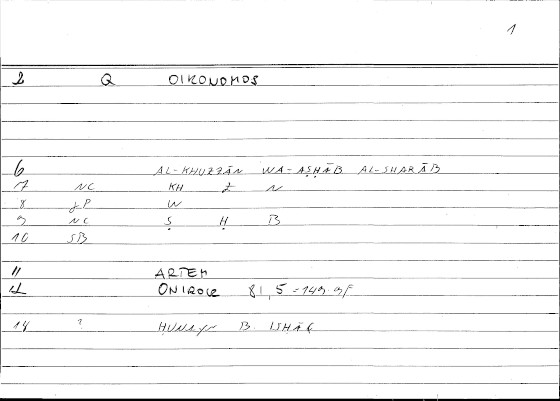 1
2 Q OIKONOMOS
6 AL-KHUZZĀN WA-AṢḤĀB AL-SHARĀB
7 NC KH Z N
8 JP W
9 NC Ṣ Ḥ B
10 SB
11 ARTEM
12 ONIROCR 81, 5 = 149.9F
14 ? ḤUNAYN B ISḤĀQ